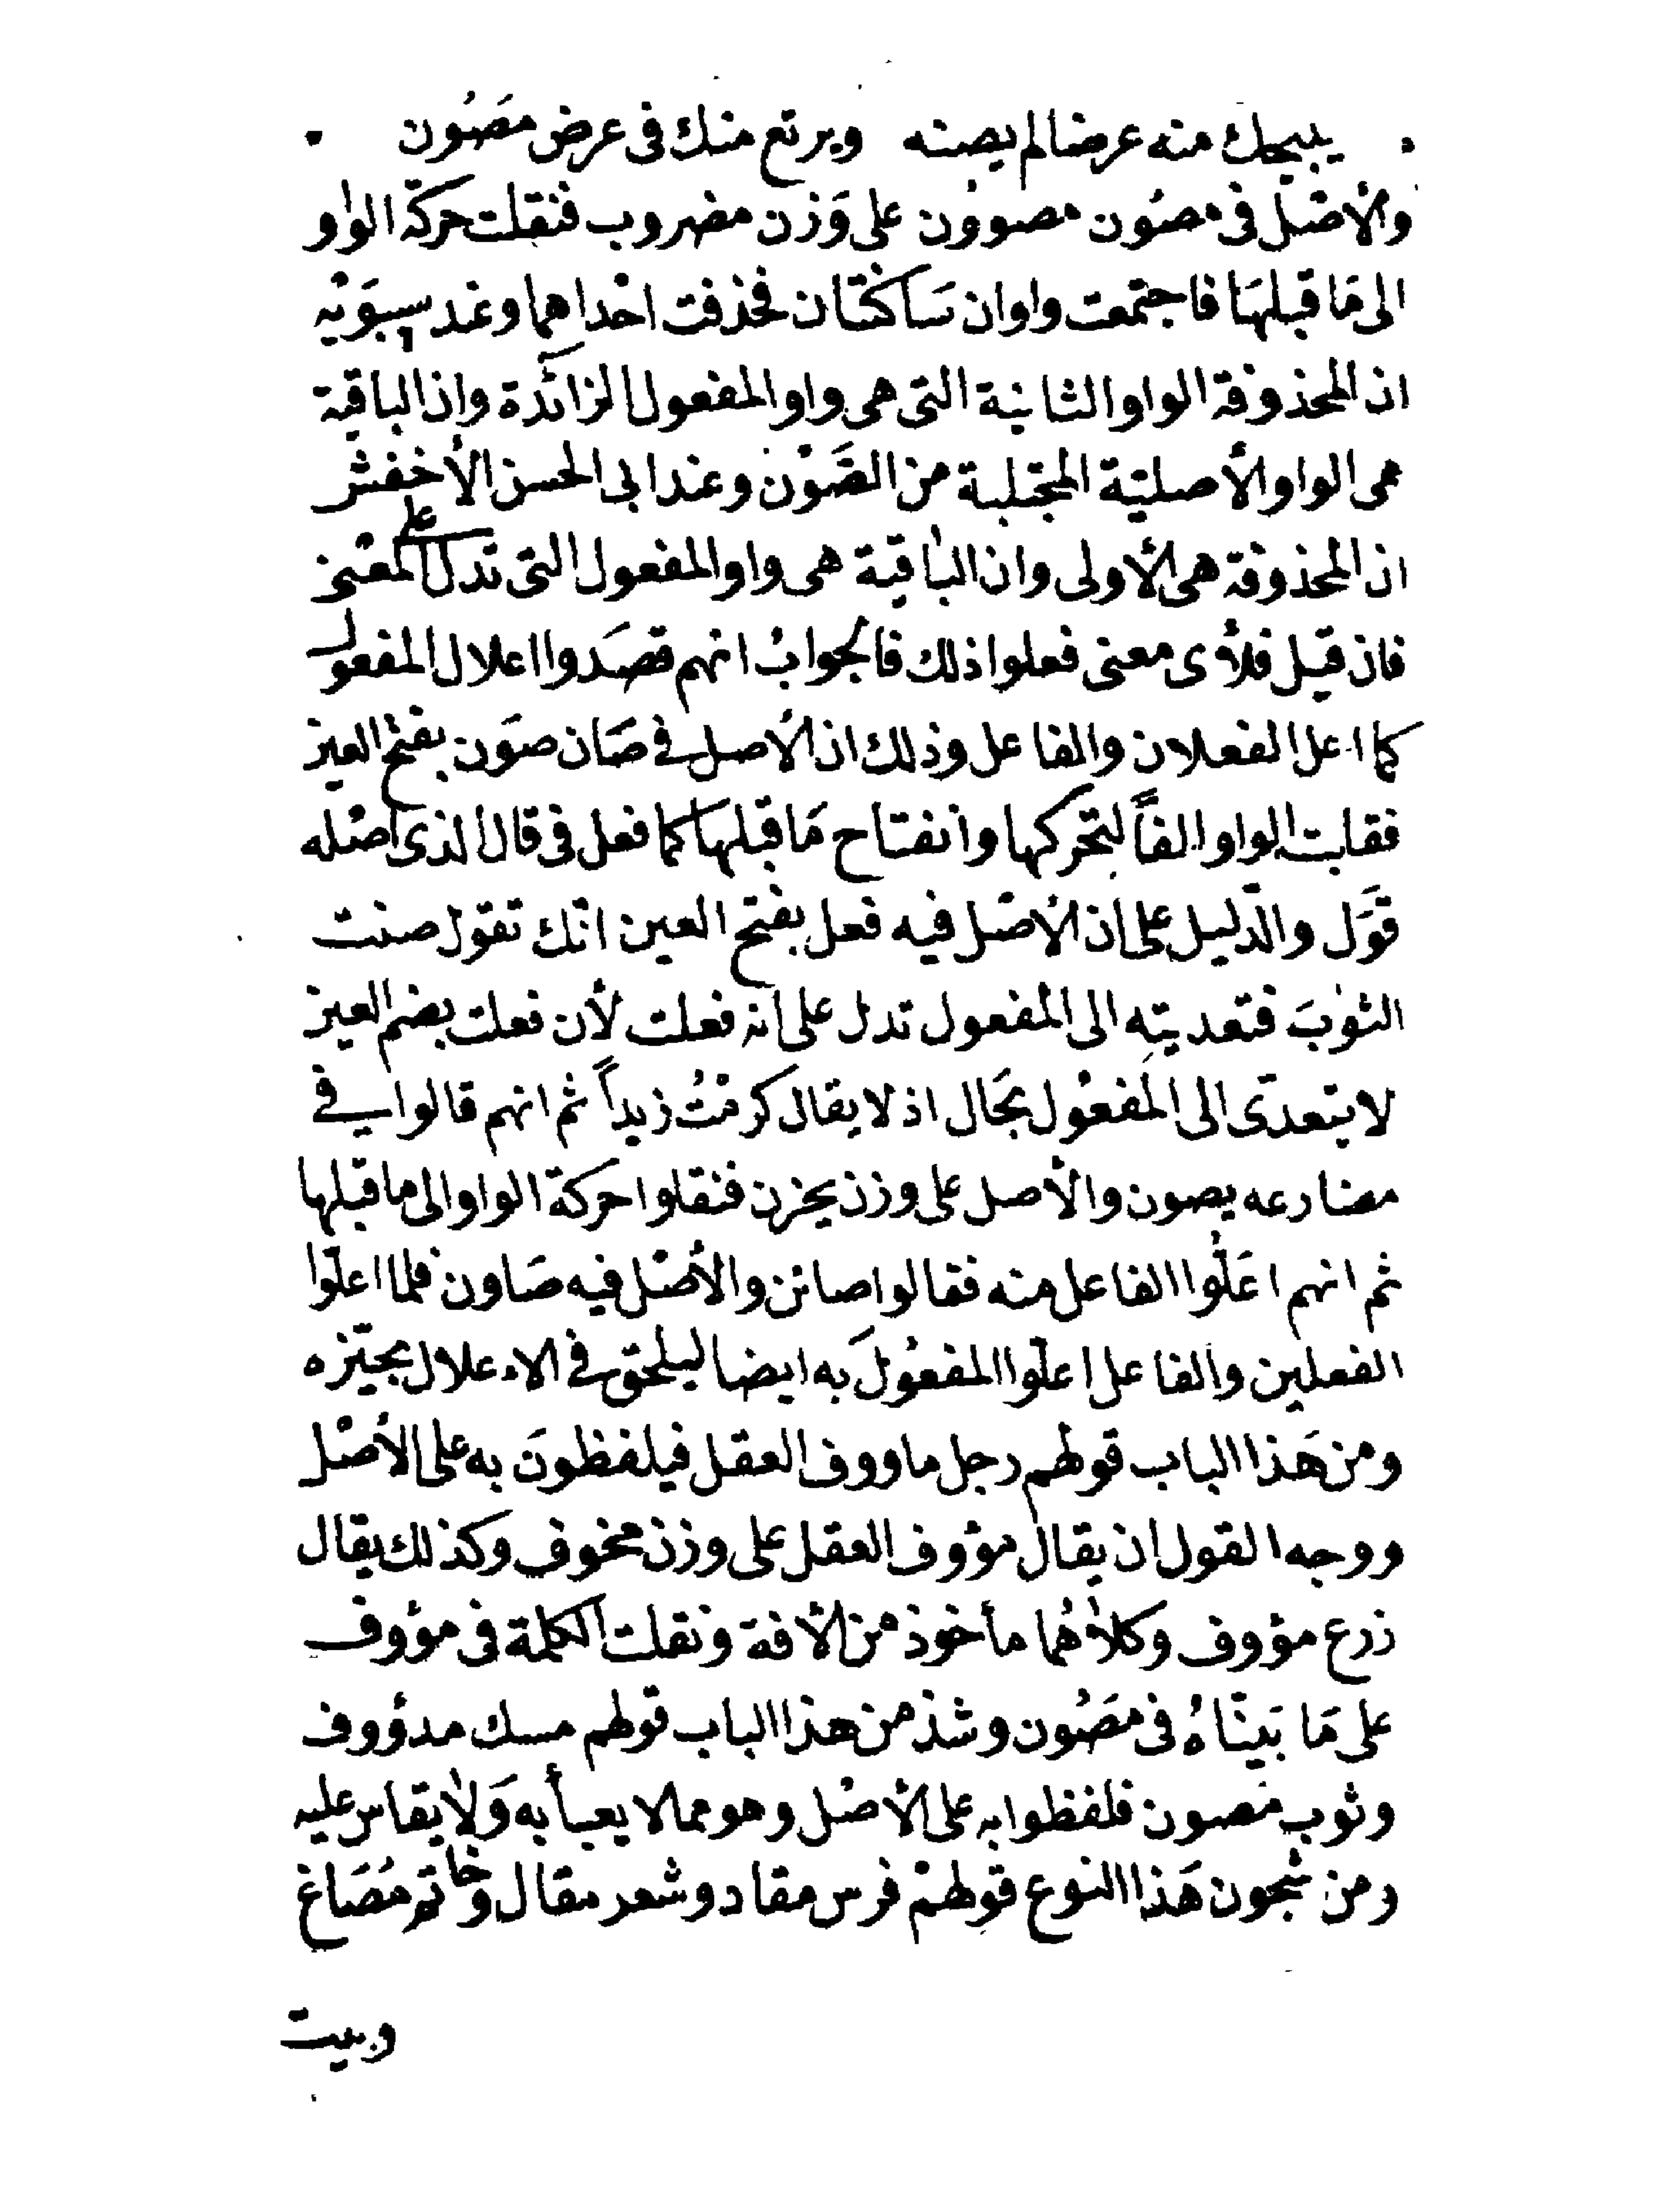 يبيحك منه عرضا لم يصنه ويرتع منك فى عرض مَصُون
والأصْل فى مصُون مصوُون على وَزن مضروب فنقلت حركة الواو
الى مَا قبلهَا فاجتمعت واوان سَاكنتان فحُذفت احْداهما وعند سيبوَيْه
ان المحذوفة الواو الثانية التى هى واو المفعول الزائدة وان الباقية
هى الواو الأصليّة المجتلبة من الصَّوْن وعند ابى الحسن الأخفش
ان المحذوفة هى الأولى وان الباقية هى واو المفعول التى تدل على المعْنى
فان قيل فلأى معنى فعلوا ذلك فالجوابُ انهم قصَدوا اعلال المفعول
كما اعل الفعلان والفاعل وذلك ان الأصل فى صَان صوَن بفتح العين
فقلبت الواو الفاً لتحركها وانفتاح مَا قبلهَا كما فعل فى قال الذى اصْله
قوَل والدّليل على ان الأصْل فيه فعل بفتح العين انّك تقول صنت
الثوبَ فتعديته الى المفعول تدل على انه فعلت لأن فعلت بضم العين
لا يتعدّى الى المَفعُول بحَال اذ لا يقال كرمْتُ زيداً ثم انهم قالوا فى
مضارعه يصون والأصل على وزن يخزن فنقلوا حركة الواو الى ما قبلها
ثم انهم اعَلّوا الفاعل منه فقالوا صائن والأصْل فيه صَاون فلما اعلّوا
الفعلين والفاعل اعلّوا المفعُولَ به ايضا ليلحق فى الاءعلال بحيّزه
ومن هَذا الباب قولهم رجل ماووف العقل فيلفظونَ به على الأصْل
ووجه القول ان يقال مؤوف العقل على وزن مخوف وكذلك يقال
زرع مؤوف وكلاهُما مأخوذ من الأفة ونقلت الكلمة فى مؤوف
على مَا بَيّنّاهُ فى مَصُون وشذ من هذا الباب قولهم مسك مدؤوف
وثوب مصون فلفظوا به على الأصْل وهو مما لا يعبأ به وَلا يقاس عليه
ومن شجون هَذا النوع قولهمْ فرس مقاد وشعر مقال وخاتم مُصَاغ
وبيت